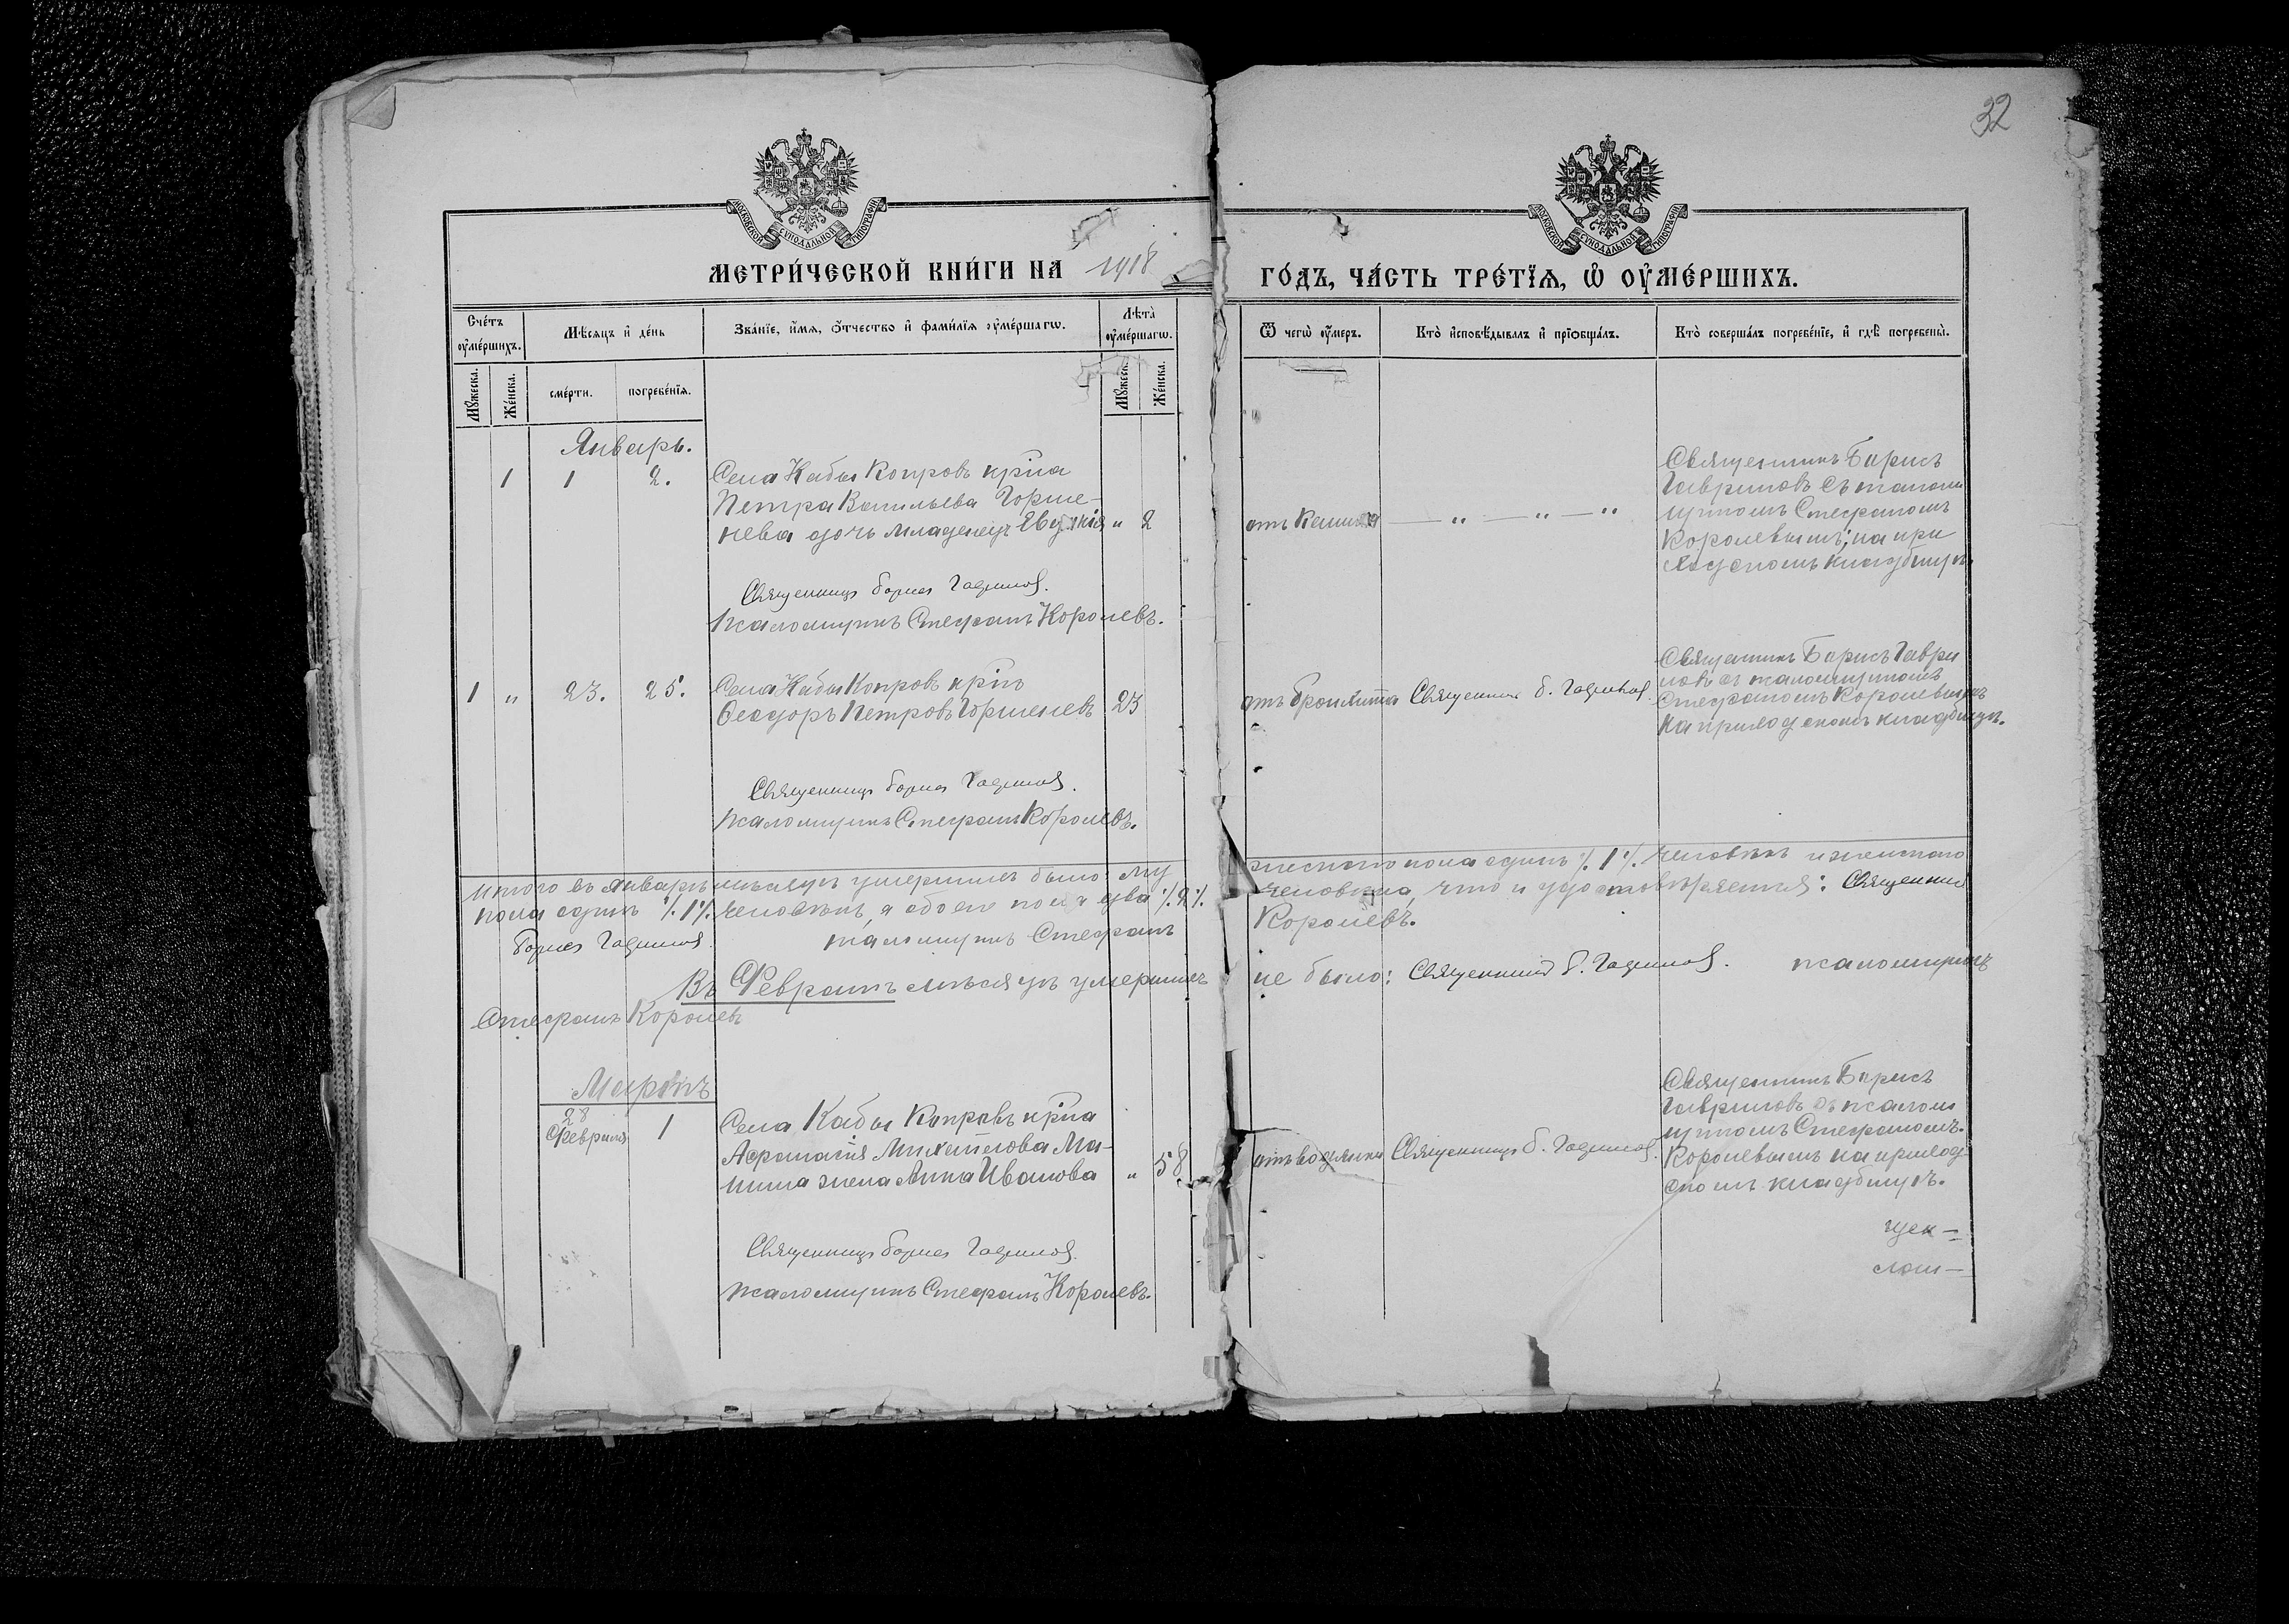 32
МОСКОВСКОЙ СУНОДАЛЬНОЙ ТИПОГРАФІИ
МОСКОВСКОЙ СУНОДАЛЬНОЙ ТИПОГРАФІИ
МЕТРИ́ЧЕСКОЙ КНИ́ГИ НА 1918
ГО́ДЪ, ЧА́СТЬ ТРЕ́ТЇѦ, Ѡ҆ ОУ҆МЕ́РШИХЪ.
Сче́тъ оу҆ме́ршихъ.
Мѣ́сяцъ и҆ де́нь
Зва́нїе, и҆́мѧ, ѻ҆́тчество и҆ фами́лїѧ оу҆ме́ршагѡ.
Лѣта̀ оу҆ме́ршагѡ.
Ѿ чегѡ̀ оу҆́меръ.
Кто̀ и҆сповѣ́дывалъ и҆ прїѻбща́лъ.
Кто̀ соверша́лъ погребе́нїе, и҆ гдѣ̀ погребены̀.
Мꙋ́жеска.
Же́нска.
сме́рти.
погребе́нїѧ.
Мꙋ́жеск.
Же́нска.
Январь.
1 1 2.
Села Кабы Копровъ кр̃на
Петра Васильева Горше-
нева дочь младенецъ Евдокія „ 2
отъ Кашля — „ — „ — „
Священникъ Борисъ
Гавриловъ съ псалом
щикомъ Стефаномъ
Королевымъ; на при
ходскомъ кладбищѣ.
Священникъ Борис Гаврилов.
Псаломщикъ Стефанъ Королевъ.
1 „ 23. 25.
Села Кабы Копровъ кр̃нъ
Ѳеодоръ Петровъ Горшеневъ 23
отъ бронхита Священник Б. Гаврилов.
Священникъ Борисъ Гаври
ловъ съ псаломщикомъ
Стефаномъ Королевымъ
на приходскомъ кладбищѣ.
Священникъ Борис Гаврилов.
Псаломщикъ Стефанъ Королевъ.
Итого въ январѣ мѣсяцѣ умершихъ было: му
жескаго пола одинъ ·/. 1 ·/. человѣкъ и женскаго
пола одинъ ·/. 1 ·/. человѣкъ, а обоего пола два ·/. 2 ·/.
человѣка, что и удостовѣряется: Священник
Борис Гаврилов. Псаломщикъ Стефанъ
Королевъ.
Въ Февралѣ мѣсяцѣ умершихъ
не было: Священник Б. Гаврилов. Псаломщикъ
Стефанъ Королевъ
Мартъ
28
Февраля 1
Села Кабы Копровъ кр̃на
Афанасія Михайлова Ми-
шина жена Анна Иванова „ 58
отъ водянки Священникъ Б. Гаврилов.
Священникъ Борисъ
Гавриловъ съ псалом
щикомъ Стефаномъ
Королевымъ на приход-
скомъ кладбищѣ.
Священникъ Борис Гаврилов.
Псаломщикъ Стефанъ Королевъ.